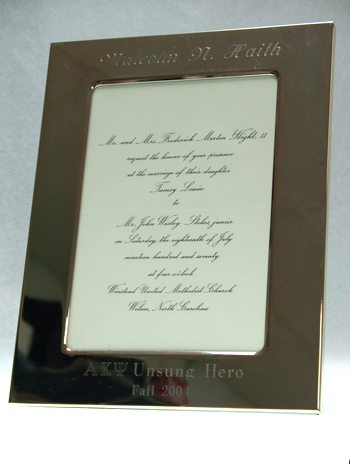 Malcolm N. Haith
Mr. and Mrs. Frederick Morton Hight, II
request the honour of your presence
at the marriage of their daughter
Tamsy Louise
to
Mr. John Wesley Stokes, junior
on Saturday, the eighteenth of July
nineteen hundred and seventy
at four o'clock
Winstead United Methodist Church
Wilson, North Carolina
ΑΚΨ Unsung Hero
Fall 2001